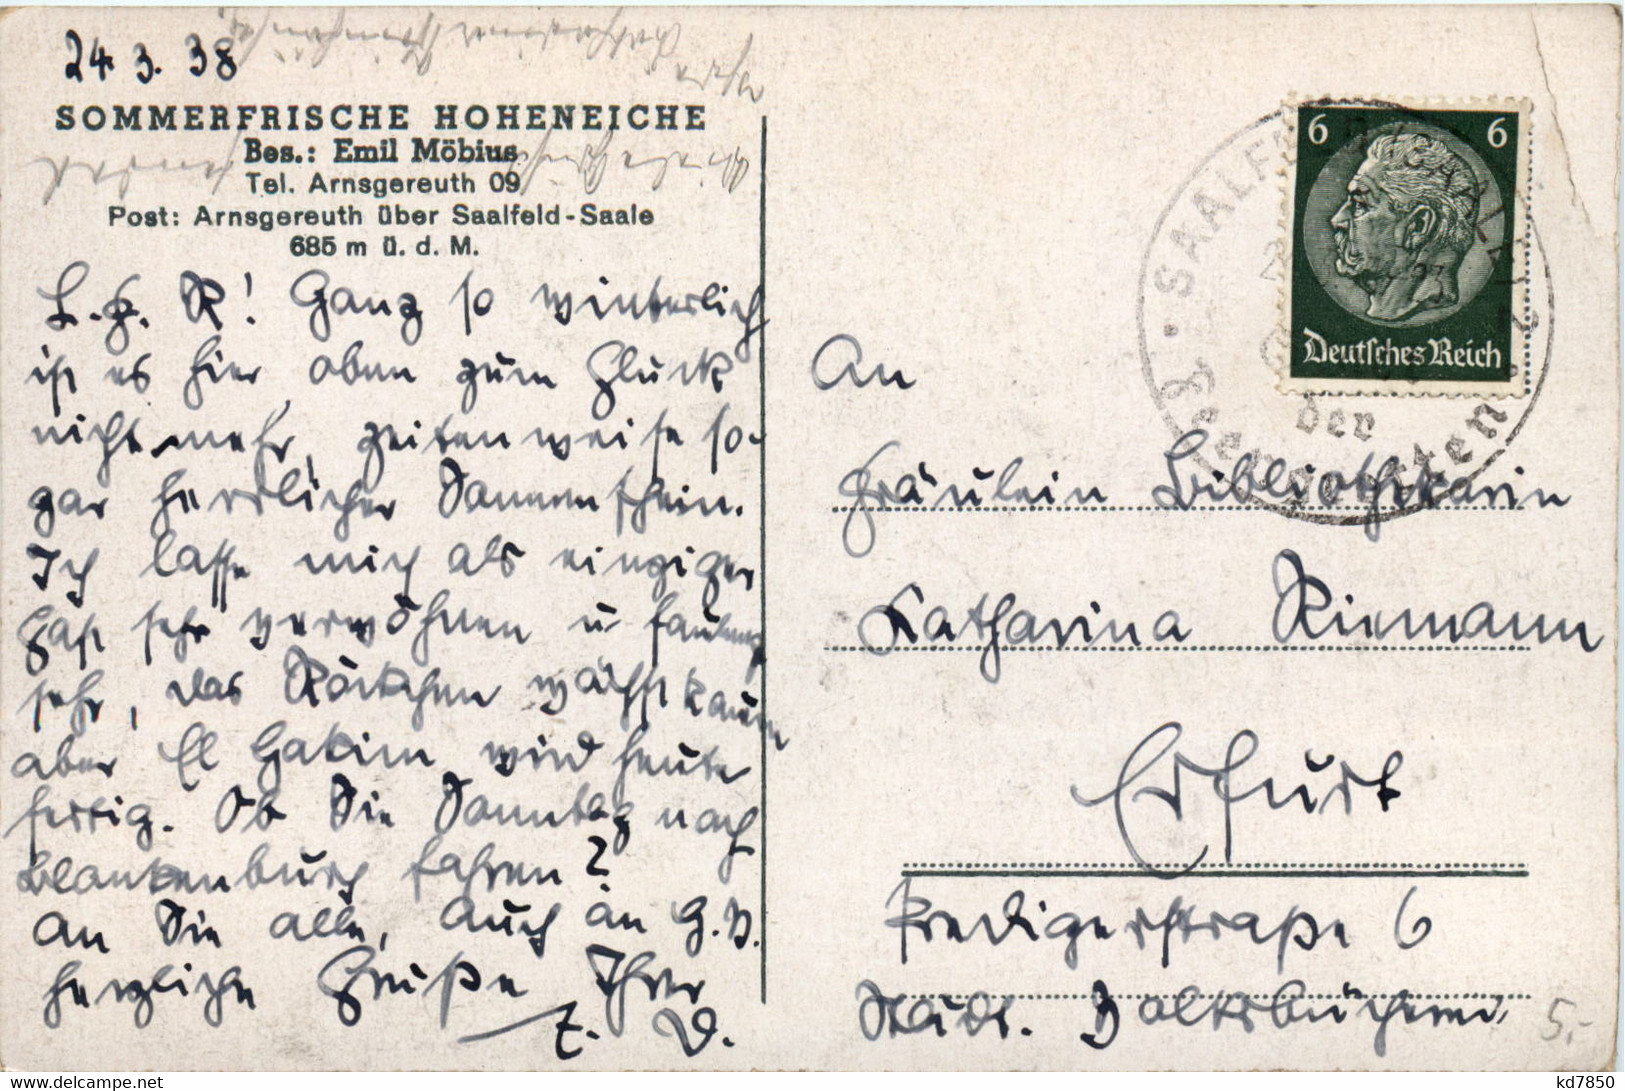 24. 3. 38
SOMMERFRISCHE HOHENEICHE
Bes.: Emil Möbius
Tel. Arnsgereuth 09
Post: Arnsgereuth über Saalfeld-Saale
685 m ü. d. M.
L. F. R! Ganz so winterlich
ist es hier oben zum Glück
nicht mehr, zeitenweise so-
gar herrlicher Sonnenschein.
Ich lasse mich als einziger
Gast sehr verwöhnen u. faulenze
sehr, das Röckchen wächst kaum
aber El Hakim wird heute
fertig. Ob Sie Sonntag nach
Blankenburg fahren?
An Sie alle, auch an G. B.
herzliche Grüße Ihre
D.
6 6
Deutsches Reich
SAALFELD (SAALE)
der
An
Fräulein Bibliothekarin
Katharina Riemann
Erfurt
Predigerstraße 6
Städt. Volksbücherei
5.-
kd7850